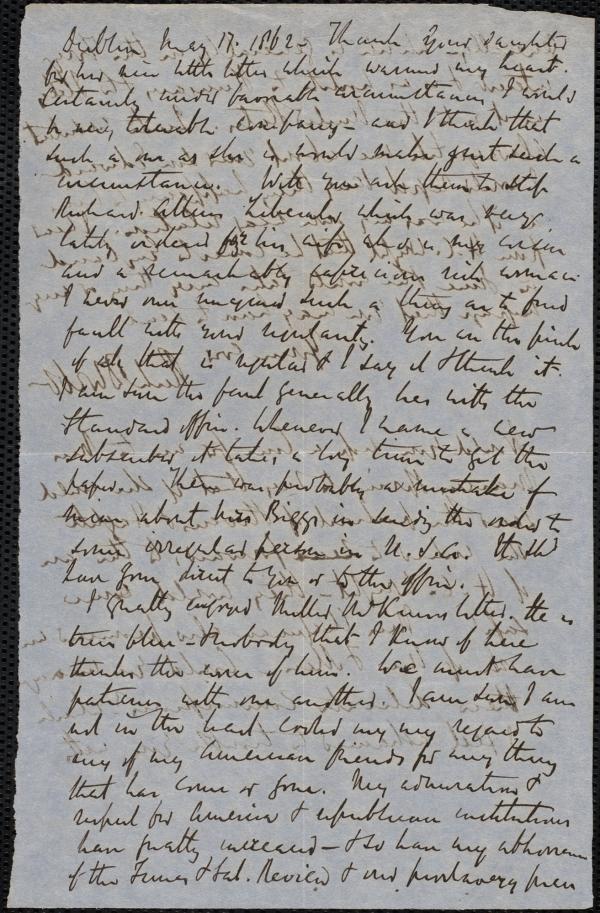 Dublin May 17. 1862 - Thank your daughter
for her nice little letter which warmed my heart.
Certainly under favorable circumstances I would
be very tolerable company - and I think that
such a one as she is would make just such a
circumstance. Will you ask them to stop
Richard Allen's Liberator which was very
lately ordered for his wife who is a
and a remarkably capricious rich woman.
I never even imagined such a thing as to find
fault with your regularity. You are the pink
of all that is regular & I say it & think it.
I am sure the fault generally lies with the
Standard office. Whenever I have a new
subscriber it takes a long time to get the
paper. There was probably a mistake of
mine about Miss Biggs in sending the order to
some irregular person in U.S. Co. It shd
have gone direct to you or to the office.
I greatly enjoyed Miller McKim's letter. He is
true blue - & nobody that I know of here
thinks the worse of him. We must have
patience with one another. I am sure I am
not in the least cooled in my regard to
any of my American friends for any thing
that has come or gone. My admiration &
respect for America & republican institutions
have greatly increased - & so has my abhorrence
of the Times & Sat. Review & our proslavery press